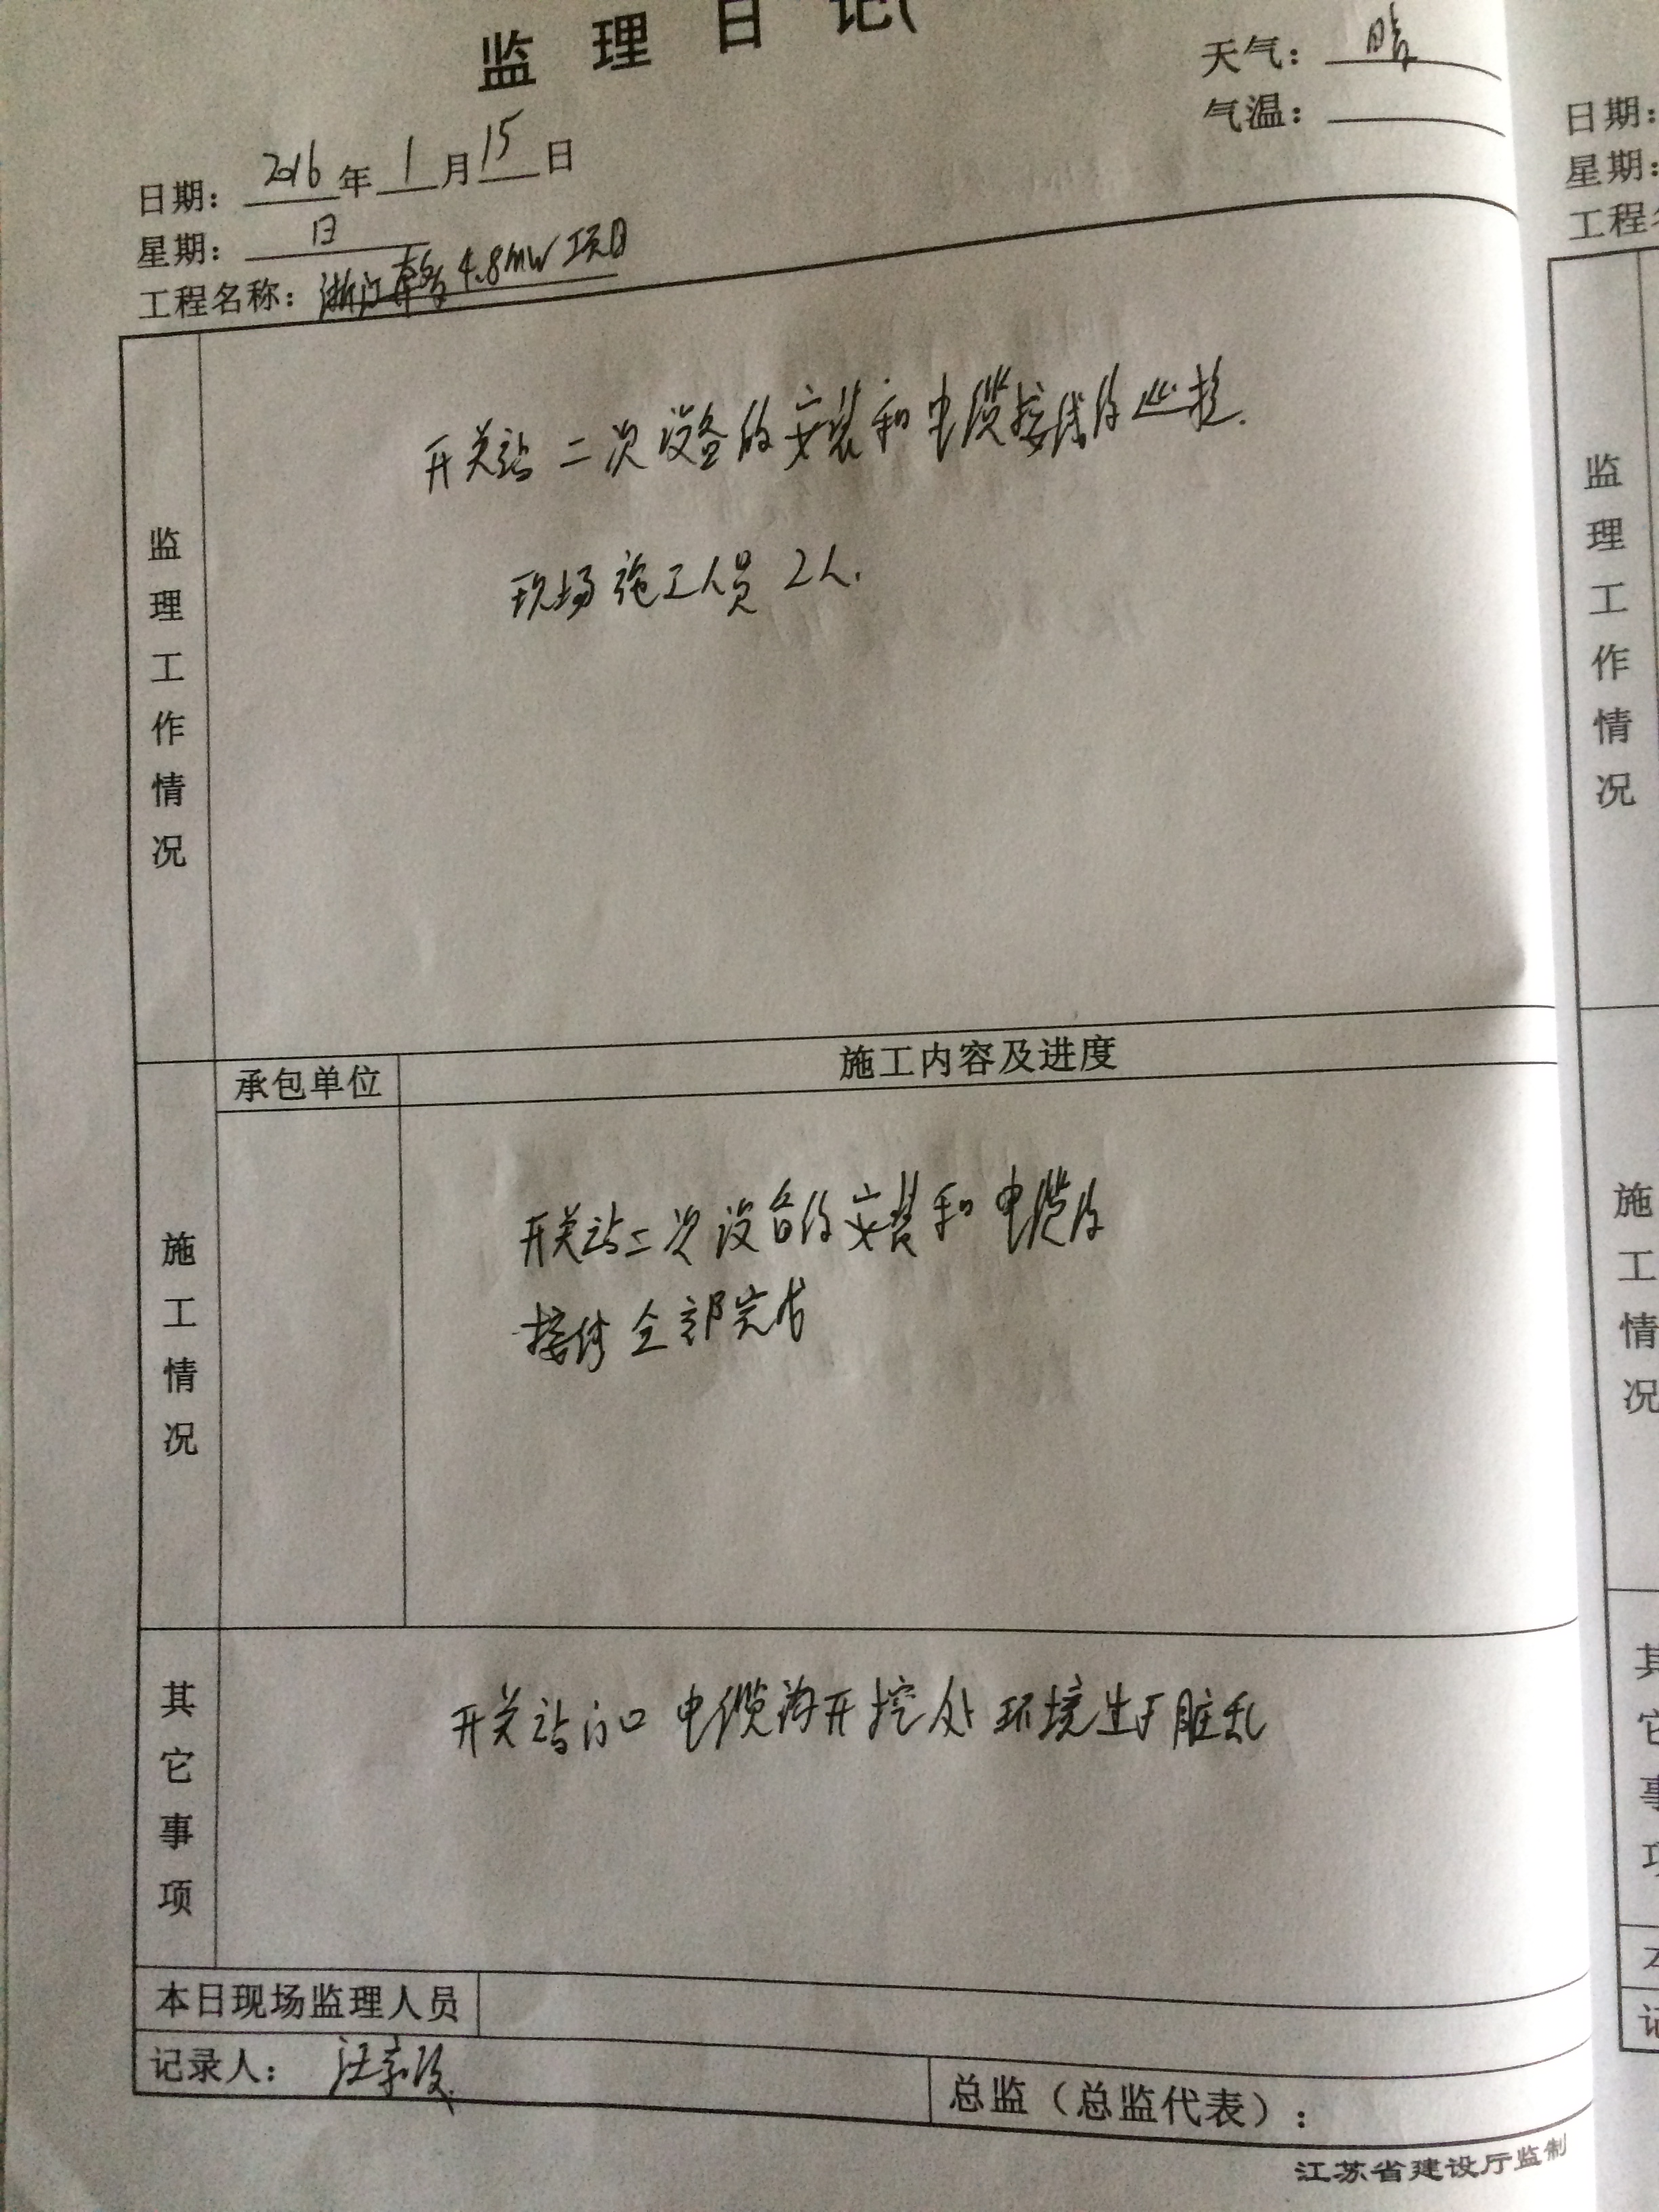 监理日记
天气：晴
气温：
日期：2016年1月15日
星期：日
工程名称：浙江 4.8MW项目
监理工作情况
开关站二次设备的安装和电缆接线的巡
现场施工人员2人.
施工情况
承包单位
施工内容及进度
开关站二次设备的安装和电缆的
接线全部完成
其它事项
开关站门口电缆沟开挖处环境 脏乱
本日现场监理人员
记录人：汪
总监（总监代表）：
江苏省建设厅监制
日期：
星期：
工程
监理工作情况
施工情况
其它事